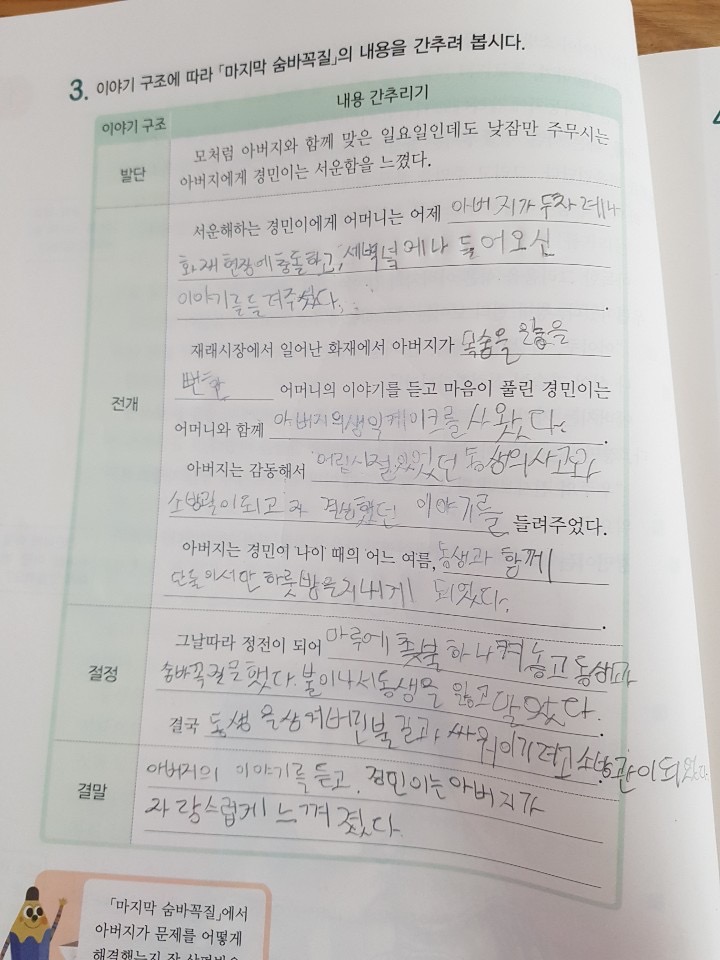 3. 이야기 구조에 따라 「마지막 숨바꼭질」의 내용을 간추려 봅시다.
이야기 구조
내용 간추리기
발단
모처럼 아버지와 함께 맞은 일요일인데도 낮잠만 주무시는
아버지에게 경민이는 서운함을 느꼈다.
전개
서운해하는 경민이에게 어머니는 어제 아버지가 두차례나
화재현장에 충돌하고, 새벽녘에나 들어오신
이야기를 들려주셨다.
재래시장에서 일어난 화재에서 아버지가 목숨을 잃을
뻔한 어머니의 이야기를 듣고 마음이 풀린 경민이는
어머니와 함께 아버지의 생일 케이크를 사왔다.
아버지는 감동해서 어린시절 있었던 동생의 사고와
소방관이 되고자 결심했던 이야기를 들려주었다.
아버지는 경민이 나이 때의 어느 여름, 동생과 함께
단둘이서만 하룻밤을 지내게 되었다.
절정
그날따라 정전이 되어 마루에 촛불 하나 켜 놓고 동생과
숨바꼭질을 했다. 불이나서 동생을 잃고 말았다.
결국 동생을 삼켜버린 불길과, 싸워 이기려고 소방관이 되었다
결말
아버지의 이야기를 듣고, 경민이는 아버지가
자랑스럽게 느껴졌다.
「마지막 숨바꼭질」에서
아버지가 문제를 어떻게